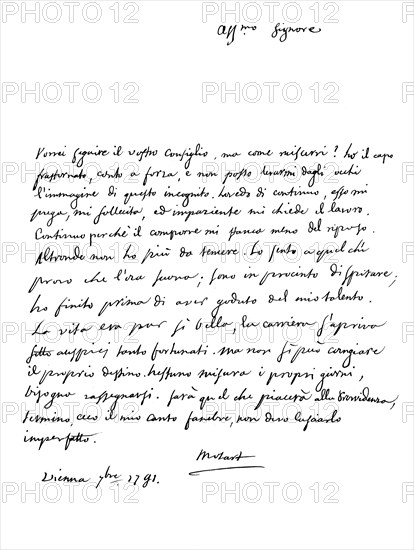 Aff.mo Signore
Vorrei seguire il vostro Consiglio, ma come riuscirvi? ho il capo
frastornato, conto a forza, e non posso levarmi dagli occhi
l'immagine di questo incognito. Lo vedo di continuo, esso mi
prega, mi sollecita, ed impaziente mi chiede il lavoro.
Continuo perchè il comporre mi stanca meno del riposo.
Altronde non ho più da temere. Lo sento a quel che
provo che l'ora suona; sono in procinto di spirare;
ho finito prima di aver goduto del mio talento.
La vita era pur sì bella, la carriera s'apriva
sotto auspici tanto fortunati. Ma non si può cangiare
il proprio destino. Nessuno misura i propri giorni,
bisogna rassegnarsi. sarà quel che piacerà alla Provvidenza,
termino, ecco il mio canto funebre, non devo lasciarlo
imperfetto.
Mozart
Vienna 7bre 1791.
PHOTO12